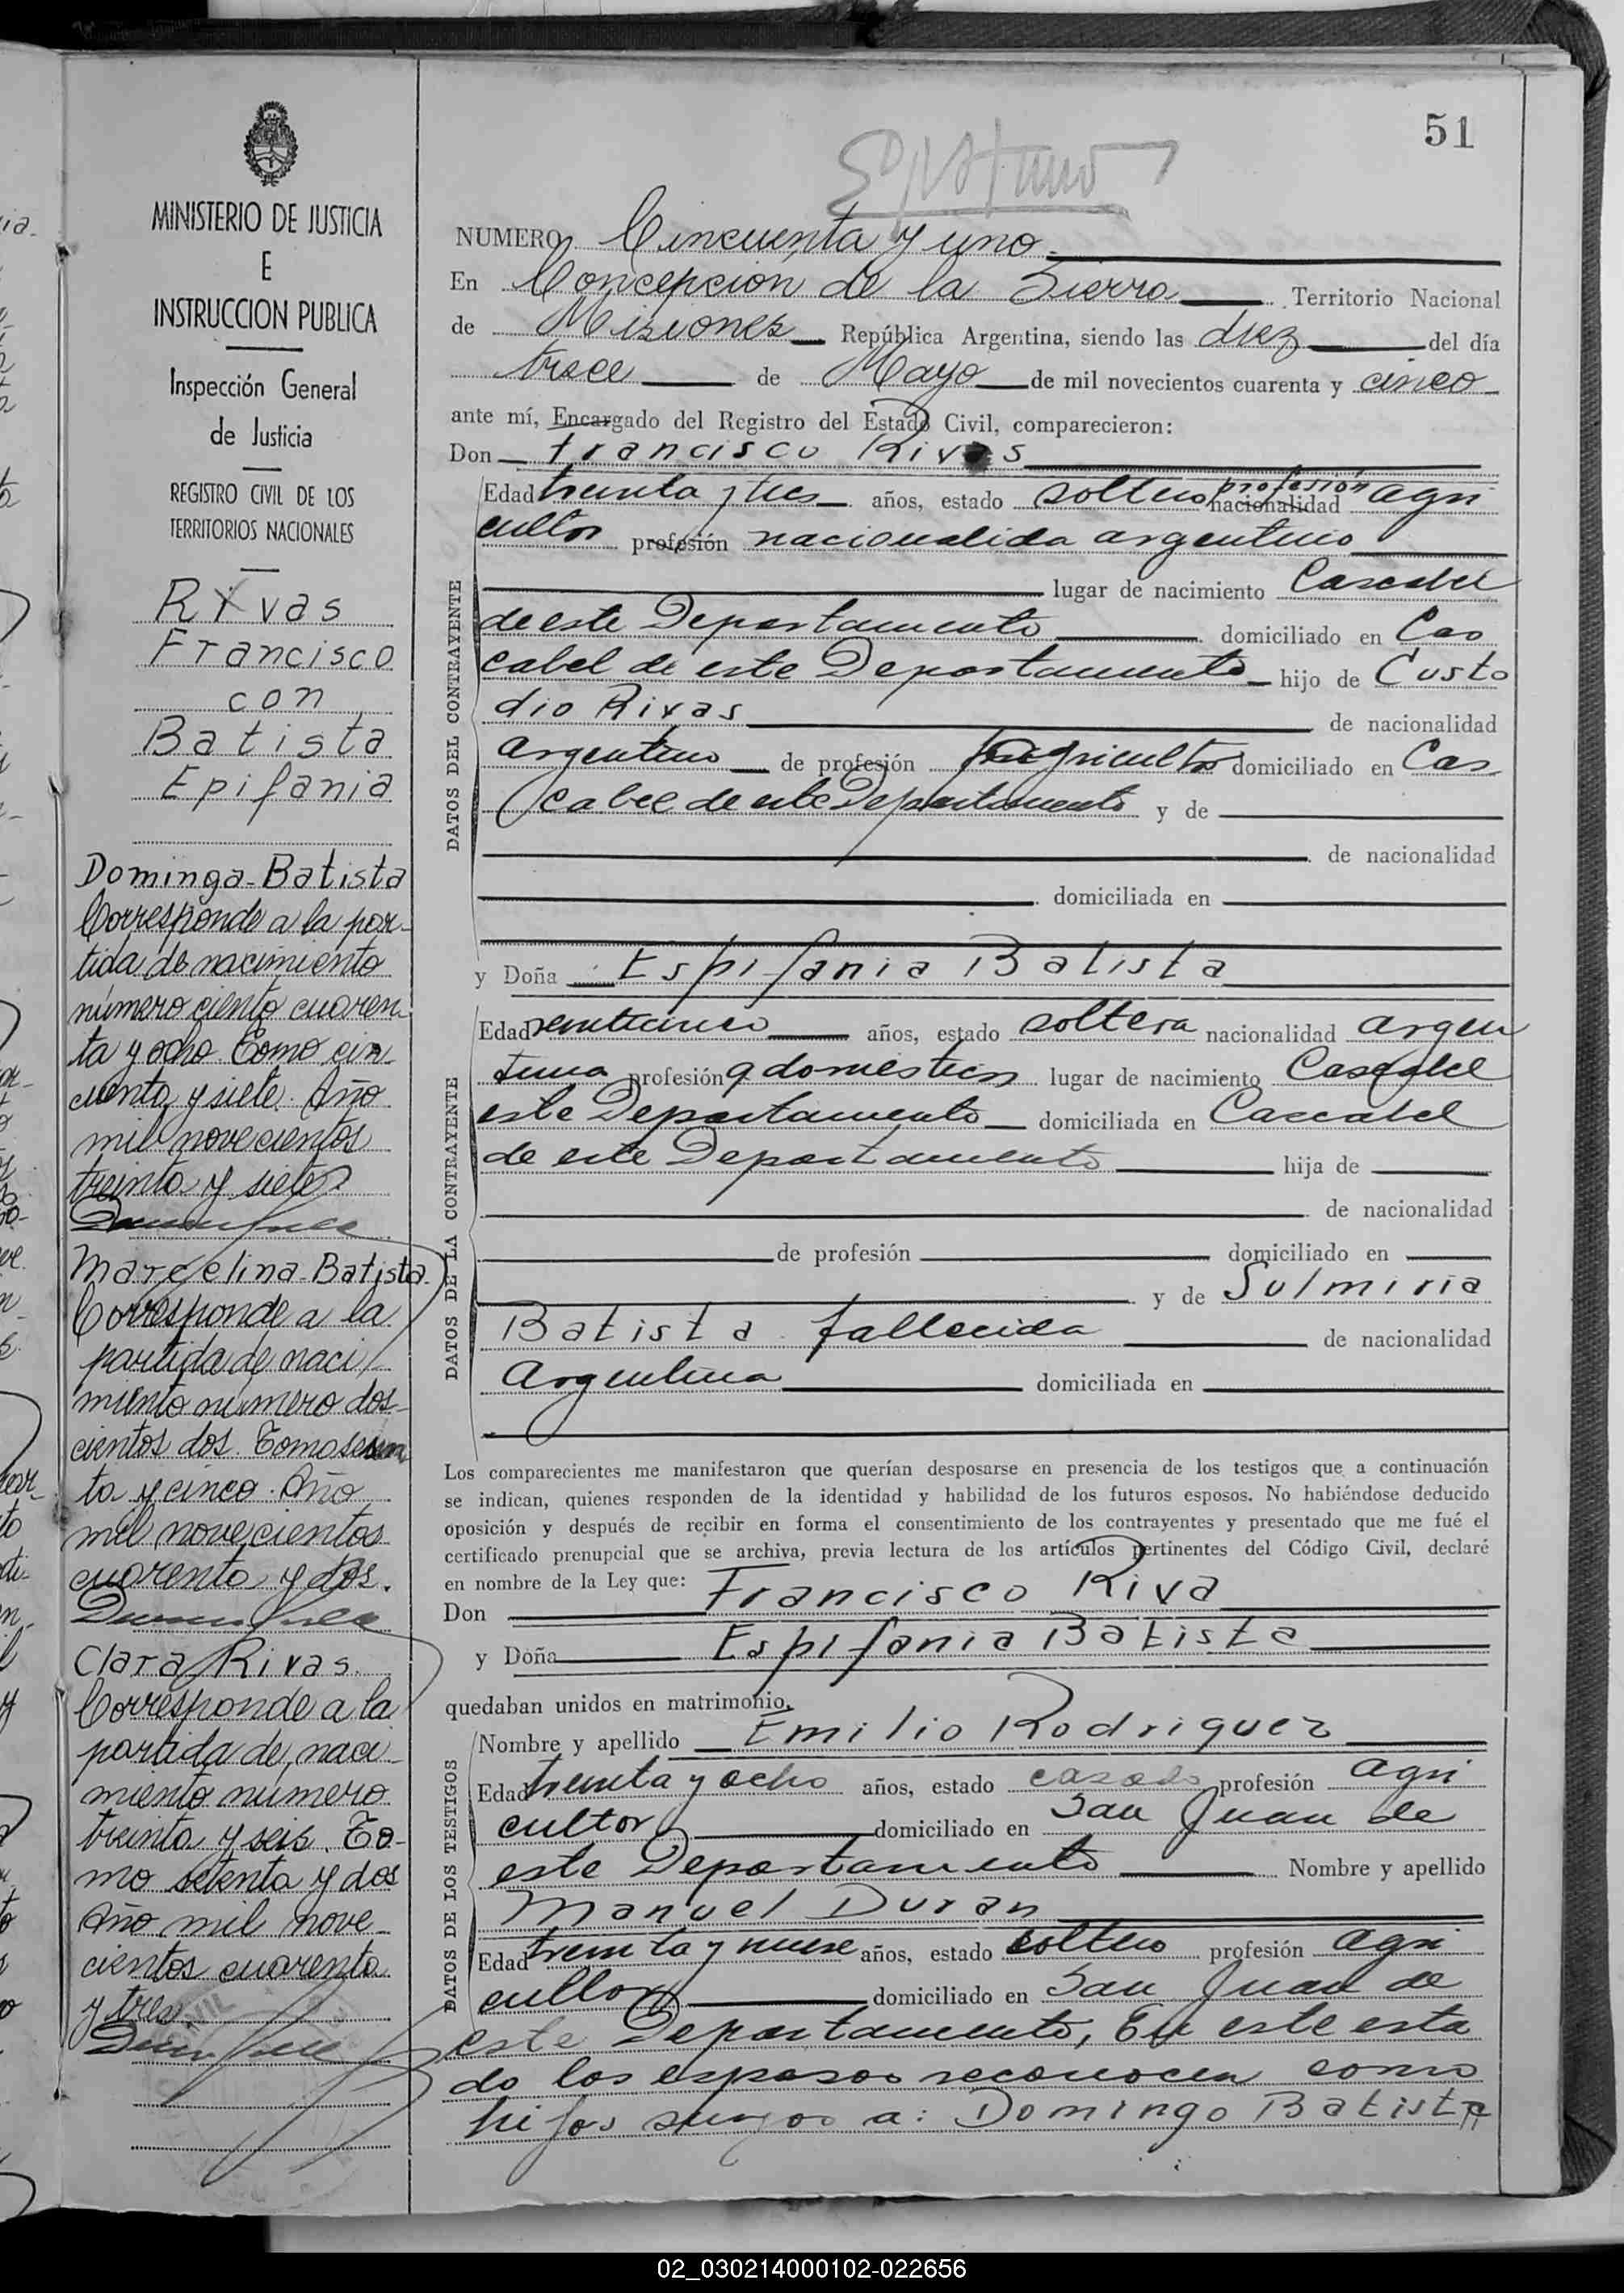 51
NUMERO Cincuenta y uno
En Concepcion de la Sierra Territorio Nacional
de Misiones República Argentina, siendo las diez del día
trece de Mayo de mil novecientos cuarenta y cinco
ante mí, Encargado del Registro del Estado Civil, comparecieron:
Don Francisco Rivas
Edad treinta y tres años, estado soltero profesión nacionalidad agri
cultor profesión nacionalida argentino
lugar de nacimiento Cascabel
de este Departamento domiciliado en Cas
cabel de este Departamento hijo de Custo
dio Rivas de nacionalidad
argentino de profesión agricultor domiciliado en Cas
cabel de este Departamento y de
de nacionalidad
domiciliada en
y Doña Espifania Batista
Edad veinticinco años, estado soltera nacionalidad argen
tina profesión q domesticos lugar de nacimiento Cascabel
este Departamento domiciliada en Cascabel
de este Departamento hija de
de nacionalidad
de profesión domiciliado en
y de Sulmiria
Batista fallecida de nacionalidad
Argentina domiciliada en
Los comparecientes me manifestaron que querían desposarse en presencia de los testigos que a continuación
se indican, quienes responden de la identidad y habilidad de los futuros esposos. No habiéndose deducido
oposición y después de recibir en forma el consentimiento de los contrayentes y presentado que me fué el
certificado prenupcial que se archiva, previa lectura de los artículos pertinentes del Código Civil, declaré
en nombre de la Ley que:
Don Francisco Riva
y Doña Espifania Batista
quedaban unidos en matrimonio.
Nombre y apellido Emilio Rodriguez
Edad treinta y ocho años, estado casado profesión agri
cultor domiciliado en San Juan de
este Departamento Nombre y apellido
Manuel Duran
Edad treinta y nueve años, estado soltero profesión agri
cultor domiciliado en San Juan de
este Departamento, En este esta
do los esposos reconocen como
hijos suyos a: Domingo Batista
DATOS DEL CONTRAYENTE
DATOS DE LA CONTRAYENTE
DATOS DE LOS TESTIGOS
MINISTERIO DE JUSTICIA
E
INSTRUCCION PUBLICA
Inspección General
de Justicia
REGISTRO CIVIL DE LOS
TERRITORIOS NACIONALES
Rivas
Francisco
con
Batista
Epifania
Dominga-Batista
Corresponde a la par-
tida de nacimiento
número ciento cuaren-
ta y ocho. Tomo cin-
cuenta y siete. Año
mil novecientos
treinta y siete
Marcelina-Batista
Corresponde a la
partida de naci
miento número dos-
cientos dos. Tomo sesen
ta y cinco. Año
mil novecientos
cuarenta y dos.
Clara Rivas
Corresponde a la
partida de naci-
miento número
treinta y seis. To-
mo setenta y dos
Año mil nove-
cientos cuarenta
y tres.
02_030214000102-022656